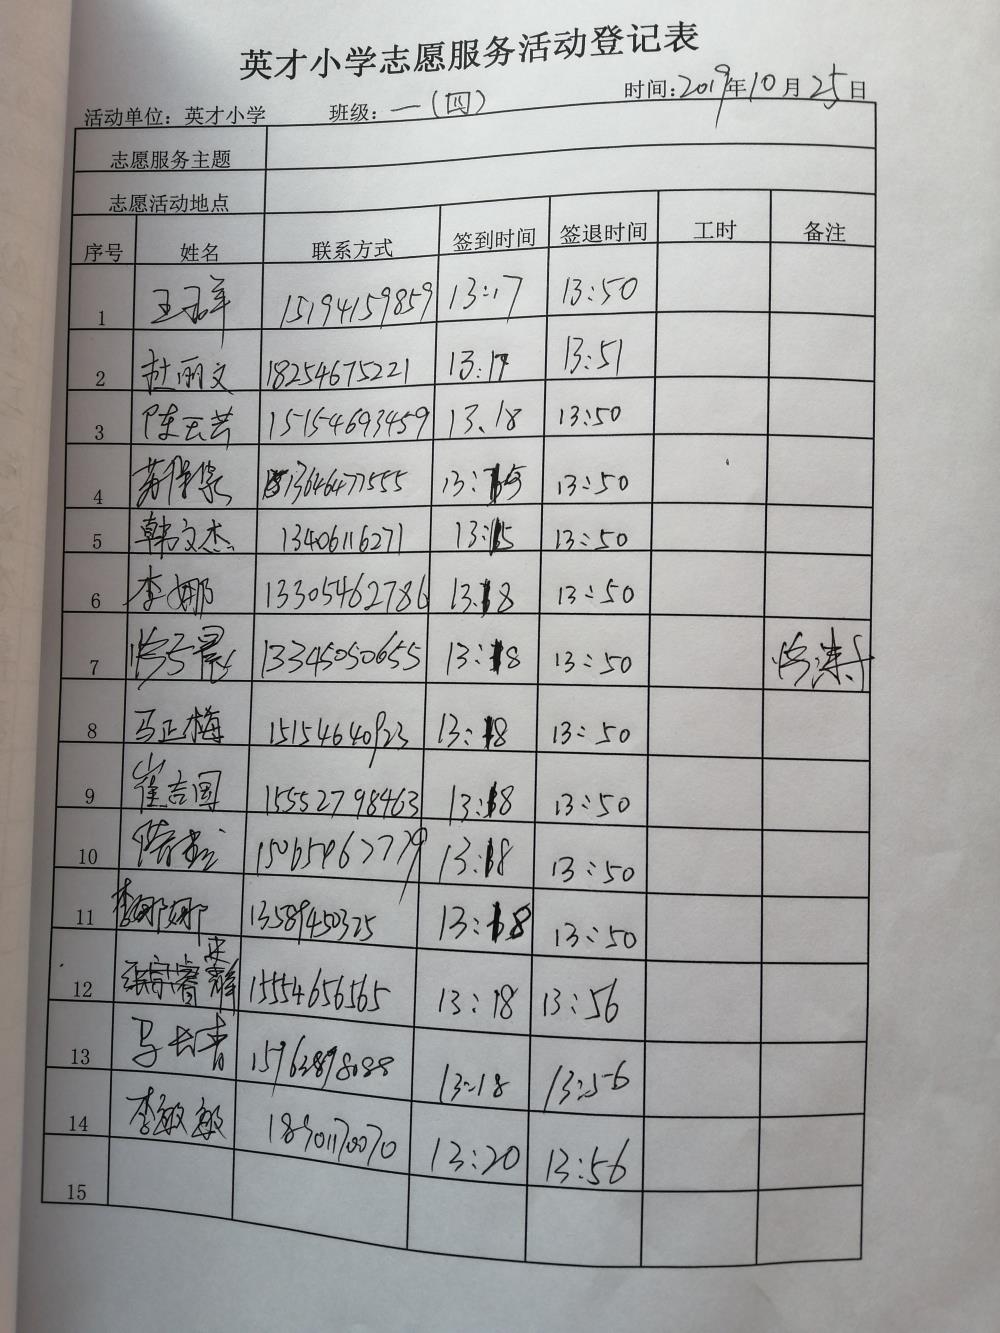 英才小学志愿服务活动登记表
活动单位：英才小学 班级：一（四） 时间：2019年10月25日
志愿服务主题
志愿活动地点
序号 姓名 联系方式 签到时间 签退时间 工时 备注
1 15194159859 13:17 13:50
2 杜丽文 18254675221 13:17 13:51
3 陈云芸 15154693459 13.18 13:50
4 13646471555 13:15 13:50
5 韩文杰 13406116271 13:15 13:50
6 李娜 13305462786 13.18 13:50
7 徐子晨 13345050655 13:18 13:50
8 马正梅 15154640923 13:18 13:50
9 崔吉国 15552798463 13:18 13:50
10 13:18 13:50
11 李娜娜 13589450325 13:18 13:50
12 15554656565 13:18 13:56
13 马长青 15963898088 13:18 13:56
14 李敏敏 18901170070 13:20 13:56
15